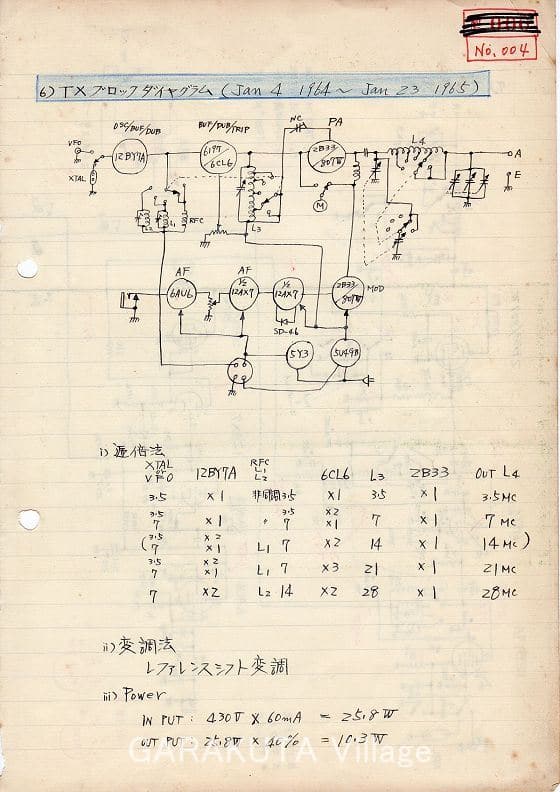 No. 004
6) TX ブロックダイヤグラム (Jan 4 1964 ~ Jan 23 1965)
OSC/BUF/DUB
BUF/DUB/TRIP
NC
PA
VFO
XTAL
12BY7A
6197/6CL6
2B33/807W
L4
A
E
M
L2
L1
RFC
L3
AF
AF
6AU6
1/2 12AX7
1/2 12AX7
2B33/807W
MOD
SD-46
5Y3
5U4GB
i) 逓倍法
XTAL or VFO 12BY7A RFC L1 L2 6CL6 L3 2B33 OUT L4
3.5 ×1 非同調 3.5 ×1 3.5 ×1 3.5MC
3.5 7 ×1 〃 3.5 7 ×2 ×1 7 ×1 7MC
(3.5 7 ×2 ×1 L1 7 ×2 14 ×1 14MC)
3.5 7 ×2 ×1 L1 7 ×3 21 ×1 21MC
7 ×2 L2 14 ×2 28 ×1 28MC
ii) 変調法
レファレンスシフト変調
iii) Power
IN PUT : 430V × 60mA = 25.8W
OUT PUT : 25.8W × 40% = 10.3W
GARAKUTA Village